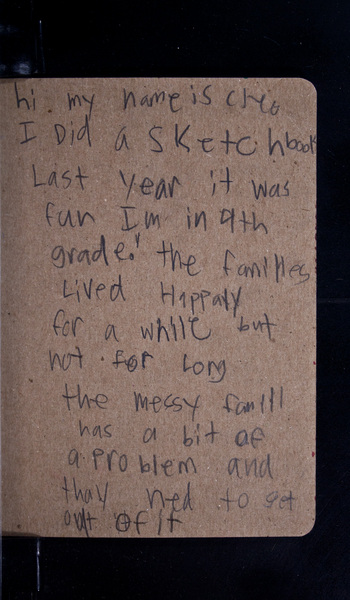 hi. my name is cleo
I Did a SKetchbook
Last year it was
fun I'm in 4th
grade! the families
Lived Happaly
for a while but
not for Long
the messy famill
has a bit of
a problem and
thay ned to get
out of it